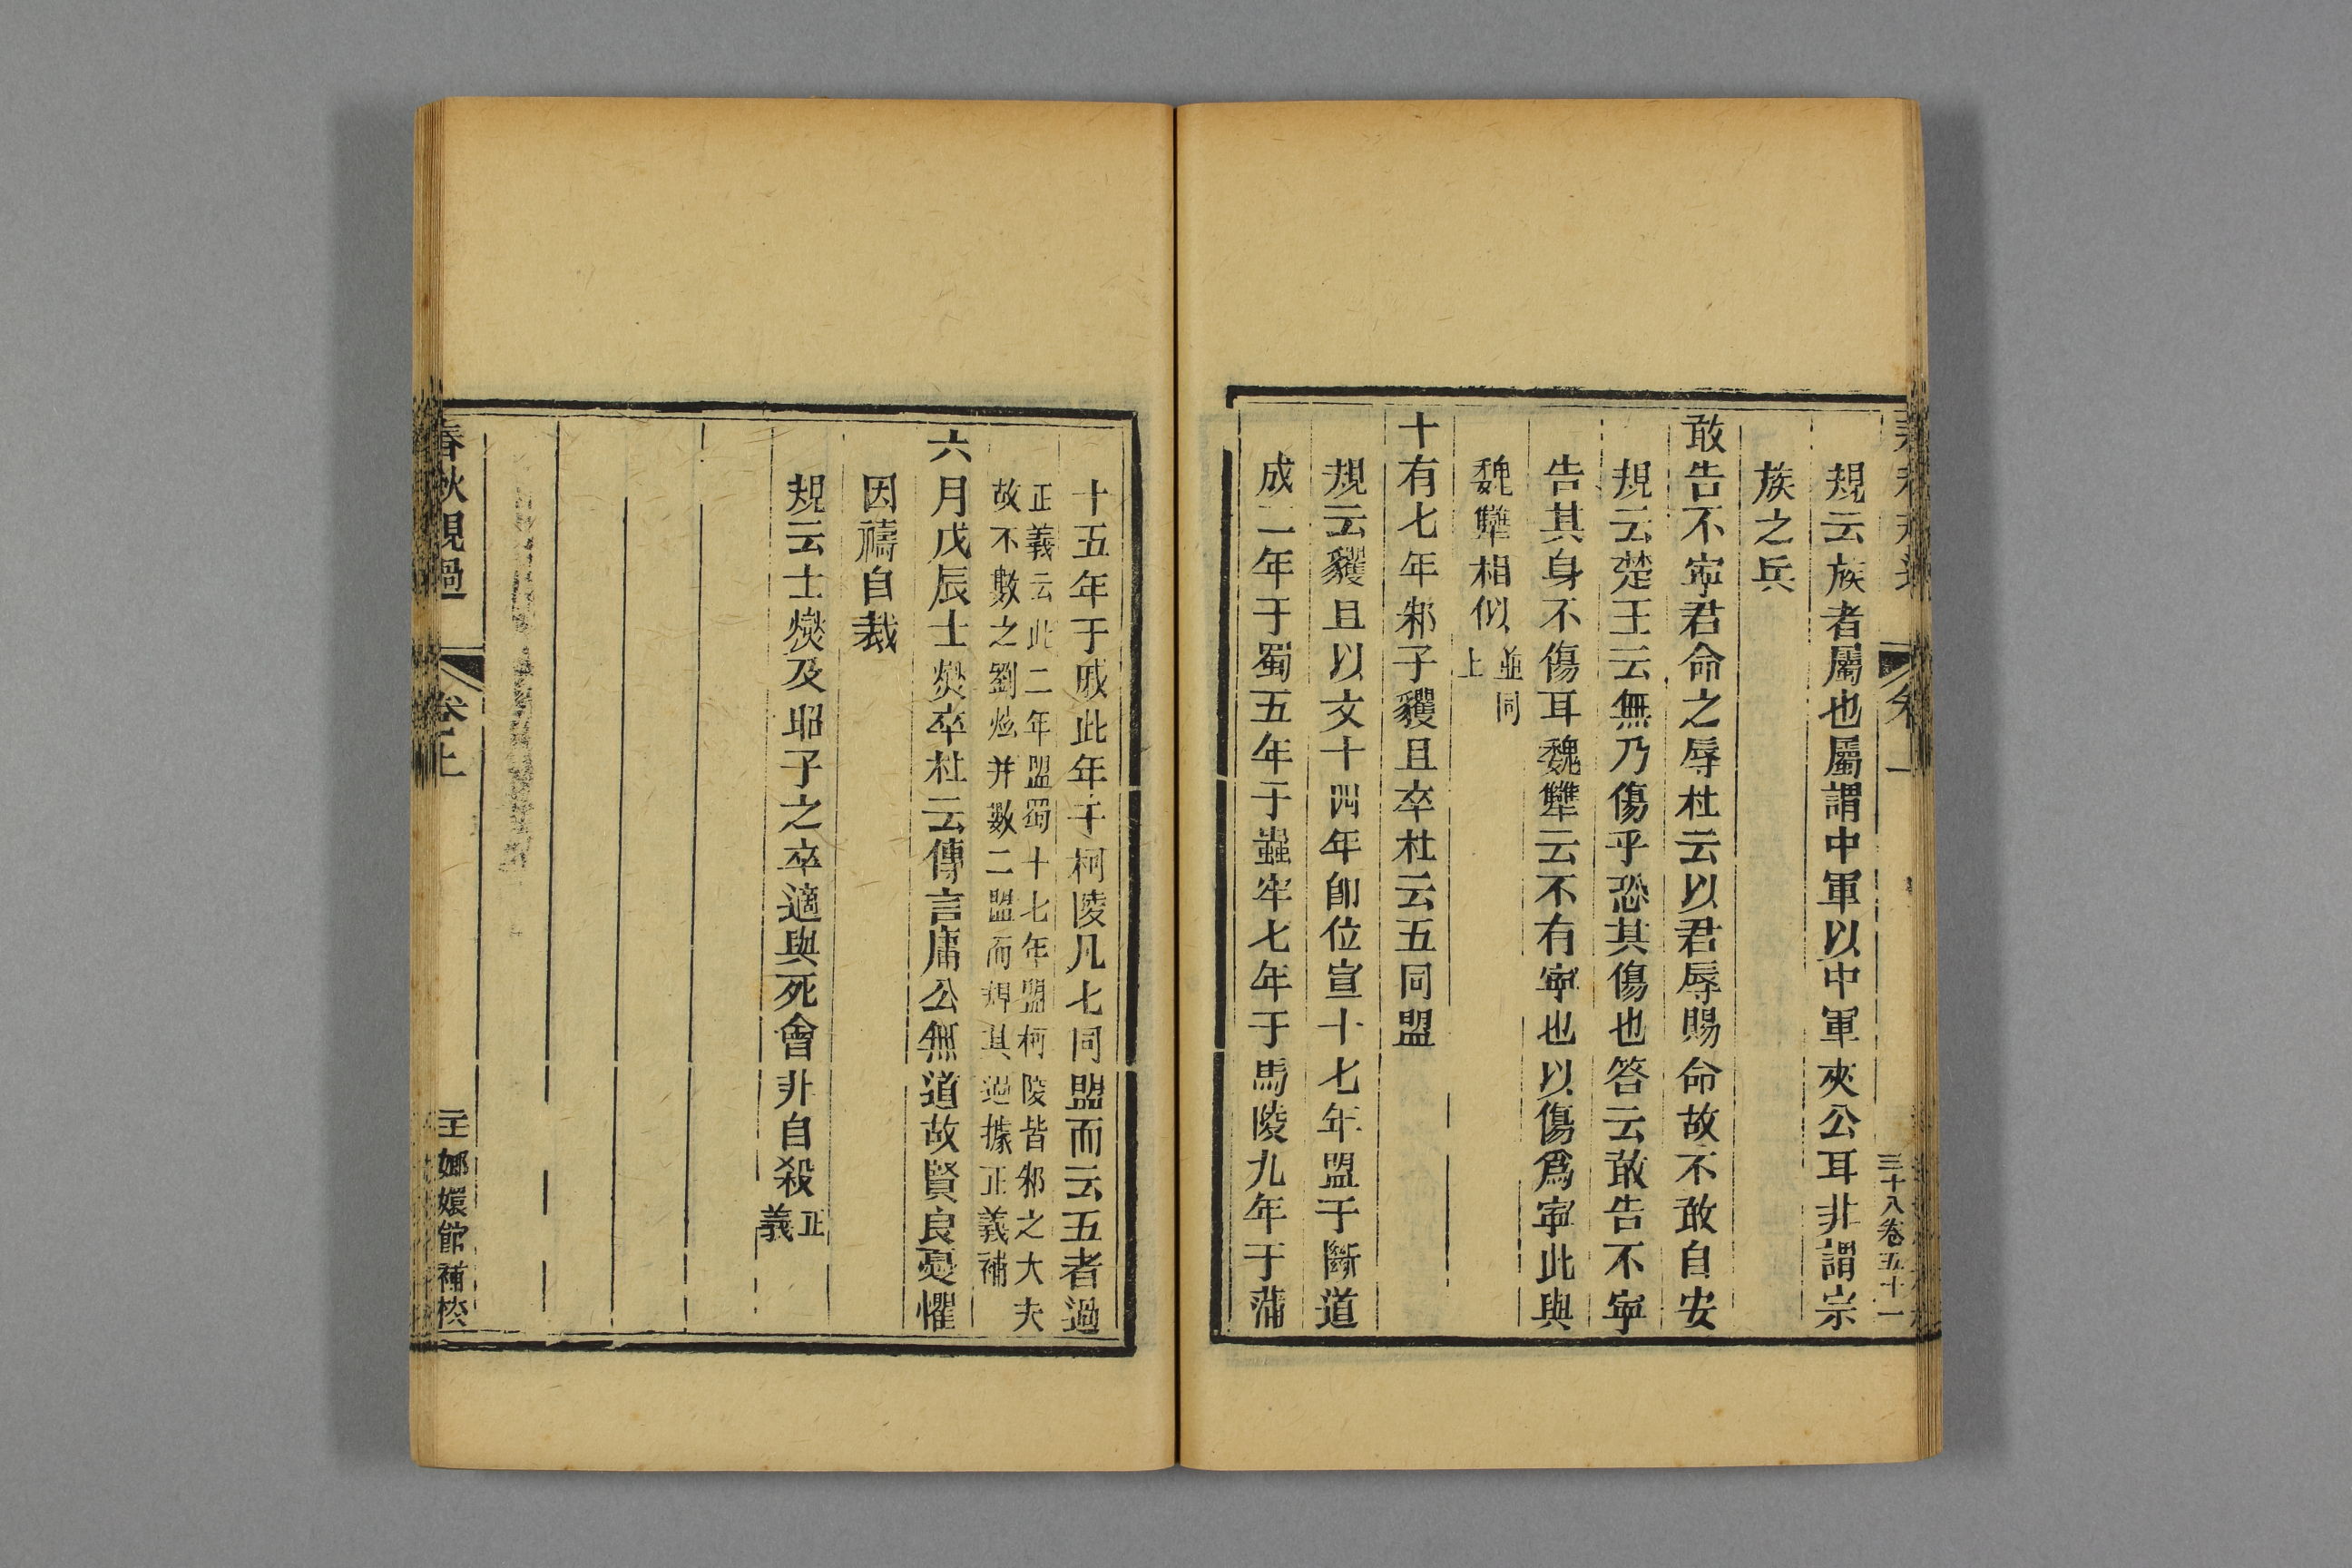 規云族者屬也屬謂中軍以中軍夾公耳非謂宗
族之兵
敢告不寍君命之辱杜云以君辱賜命故不敢自安
規云楚王云無乃傷乎恐其傷也答云敢告不寍
告其身不傷耳魏犨云不有寍也以傷爲寍此與
魏犨相似並同上
十有七年邾子貜且卒杜云五同盟
規云貜且以文十四年卽位宣十七年盟于斷道
成二年于蜀五年于蟲牢七年于馬陵九年于蒲
十五年于戚此年于柯陵凡七同盟而云五者過
正義云此二年盟蜀十七年盟柯陵皆邾之大夫
故不數之劉炫并數二盟而規其過據正義補
六月戊辰士燮卒杜云傳言庸公無道故賢良憂懼
因禱自裁
規云士燮及昭子之卒適與死會非自殺正義
春秋規過
卷上
嫏嬛館補校
三十八卷五十一